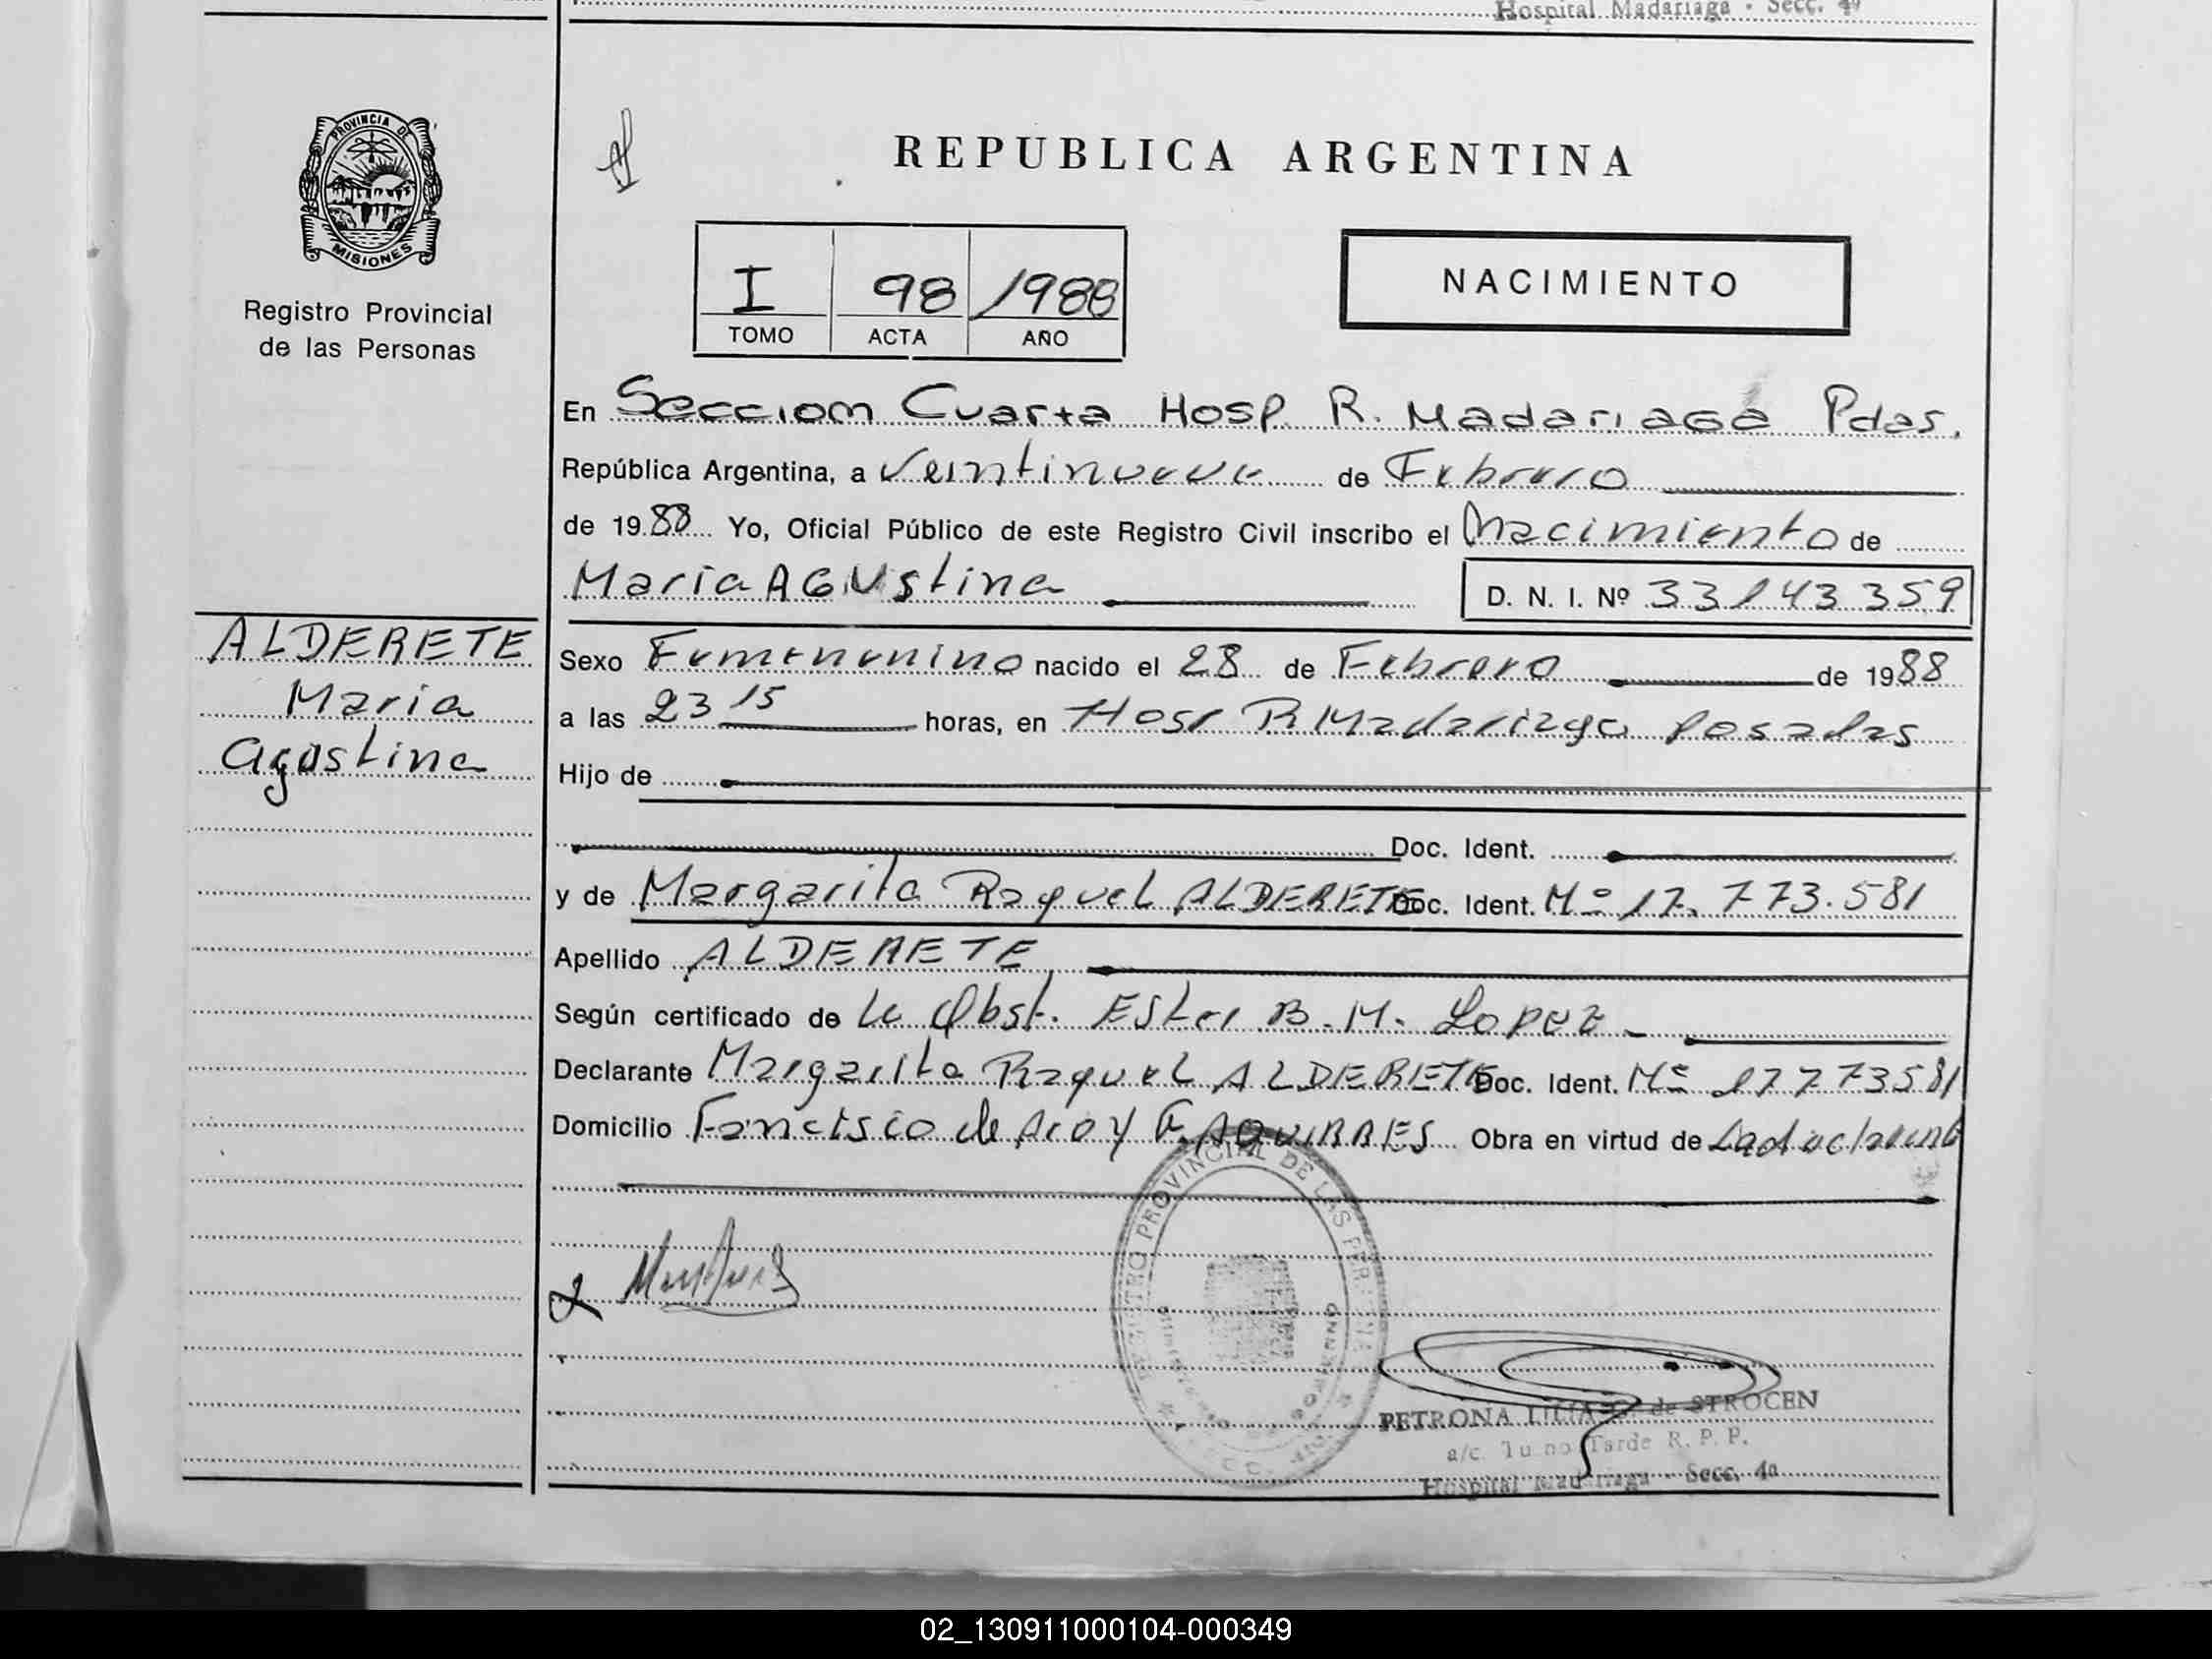 Hospital Madariaga - Secc. 4ª
PROVINCIA DE
MISIONES
Registro Provincial
de las Personas
REPUBLICA ARGENTINA
I 98 1988
TOMO ACTA AÑO
NACIMIENTO
En Seccion Cuarta Hosp. R. Madariaga Pdas.
República Argentina, a Veintinueve de Febrero
de 1988 Yo, Oficial Público de este Registro Civil inscribo el Nacimiento de
Maria AGUstina
D. N. I. Nº 33143359
ALDERETE
Maria
Agostina
Sexo Femenenino nacido el 28 de Febrero de 1988
a las 23 15 horas, en Hosp R Madariaga Posadas
Hijo de
Doc. Ident.
y de Margarita Raquel ALDERETE Doc. Ident. Mº 17.773.581
Apellido ALDERETE
Según certificado de La Obst. Ester B. M. Lopez
Declarante Margarita Raquel ALDERETE Doc. Ident. Mº 17773581
Domicilio de Aro y Obra en virtud de
REGISTRO PROVINCIAL DE LAS PERSONAS
PETRONA LILIA de STROCEN
a/c. Turno Tarde R. P. P.
Hospital Madariaga - Secc. 4a
02_130911000104-000349